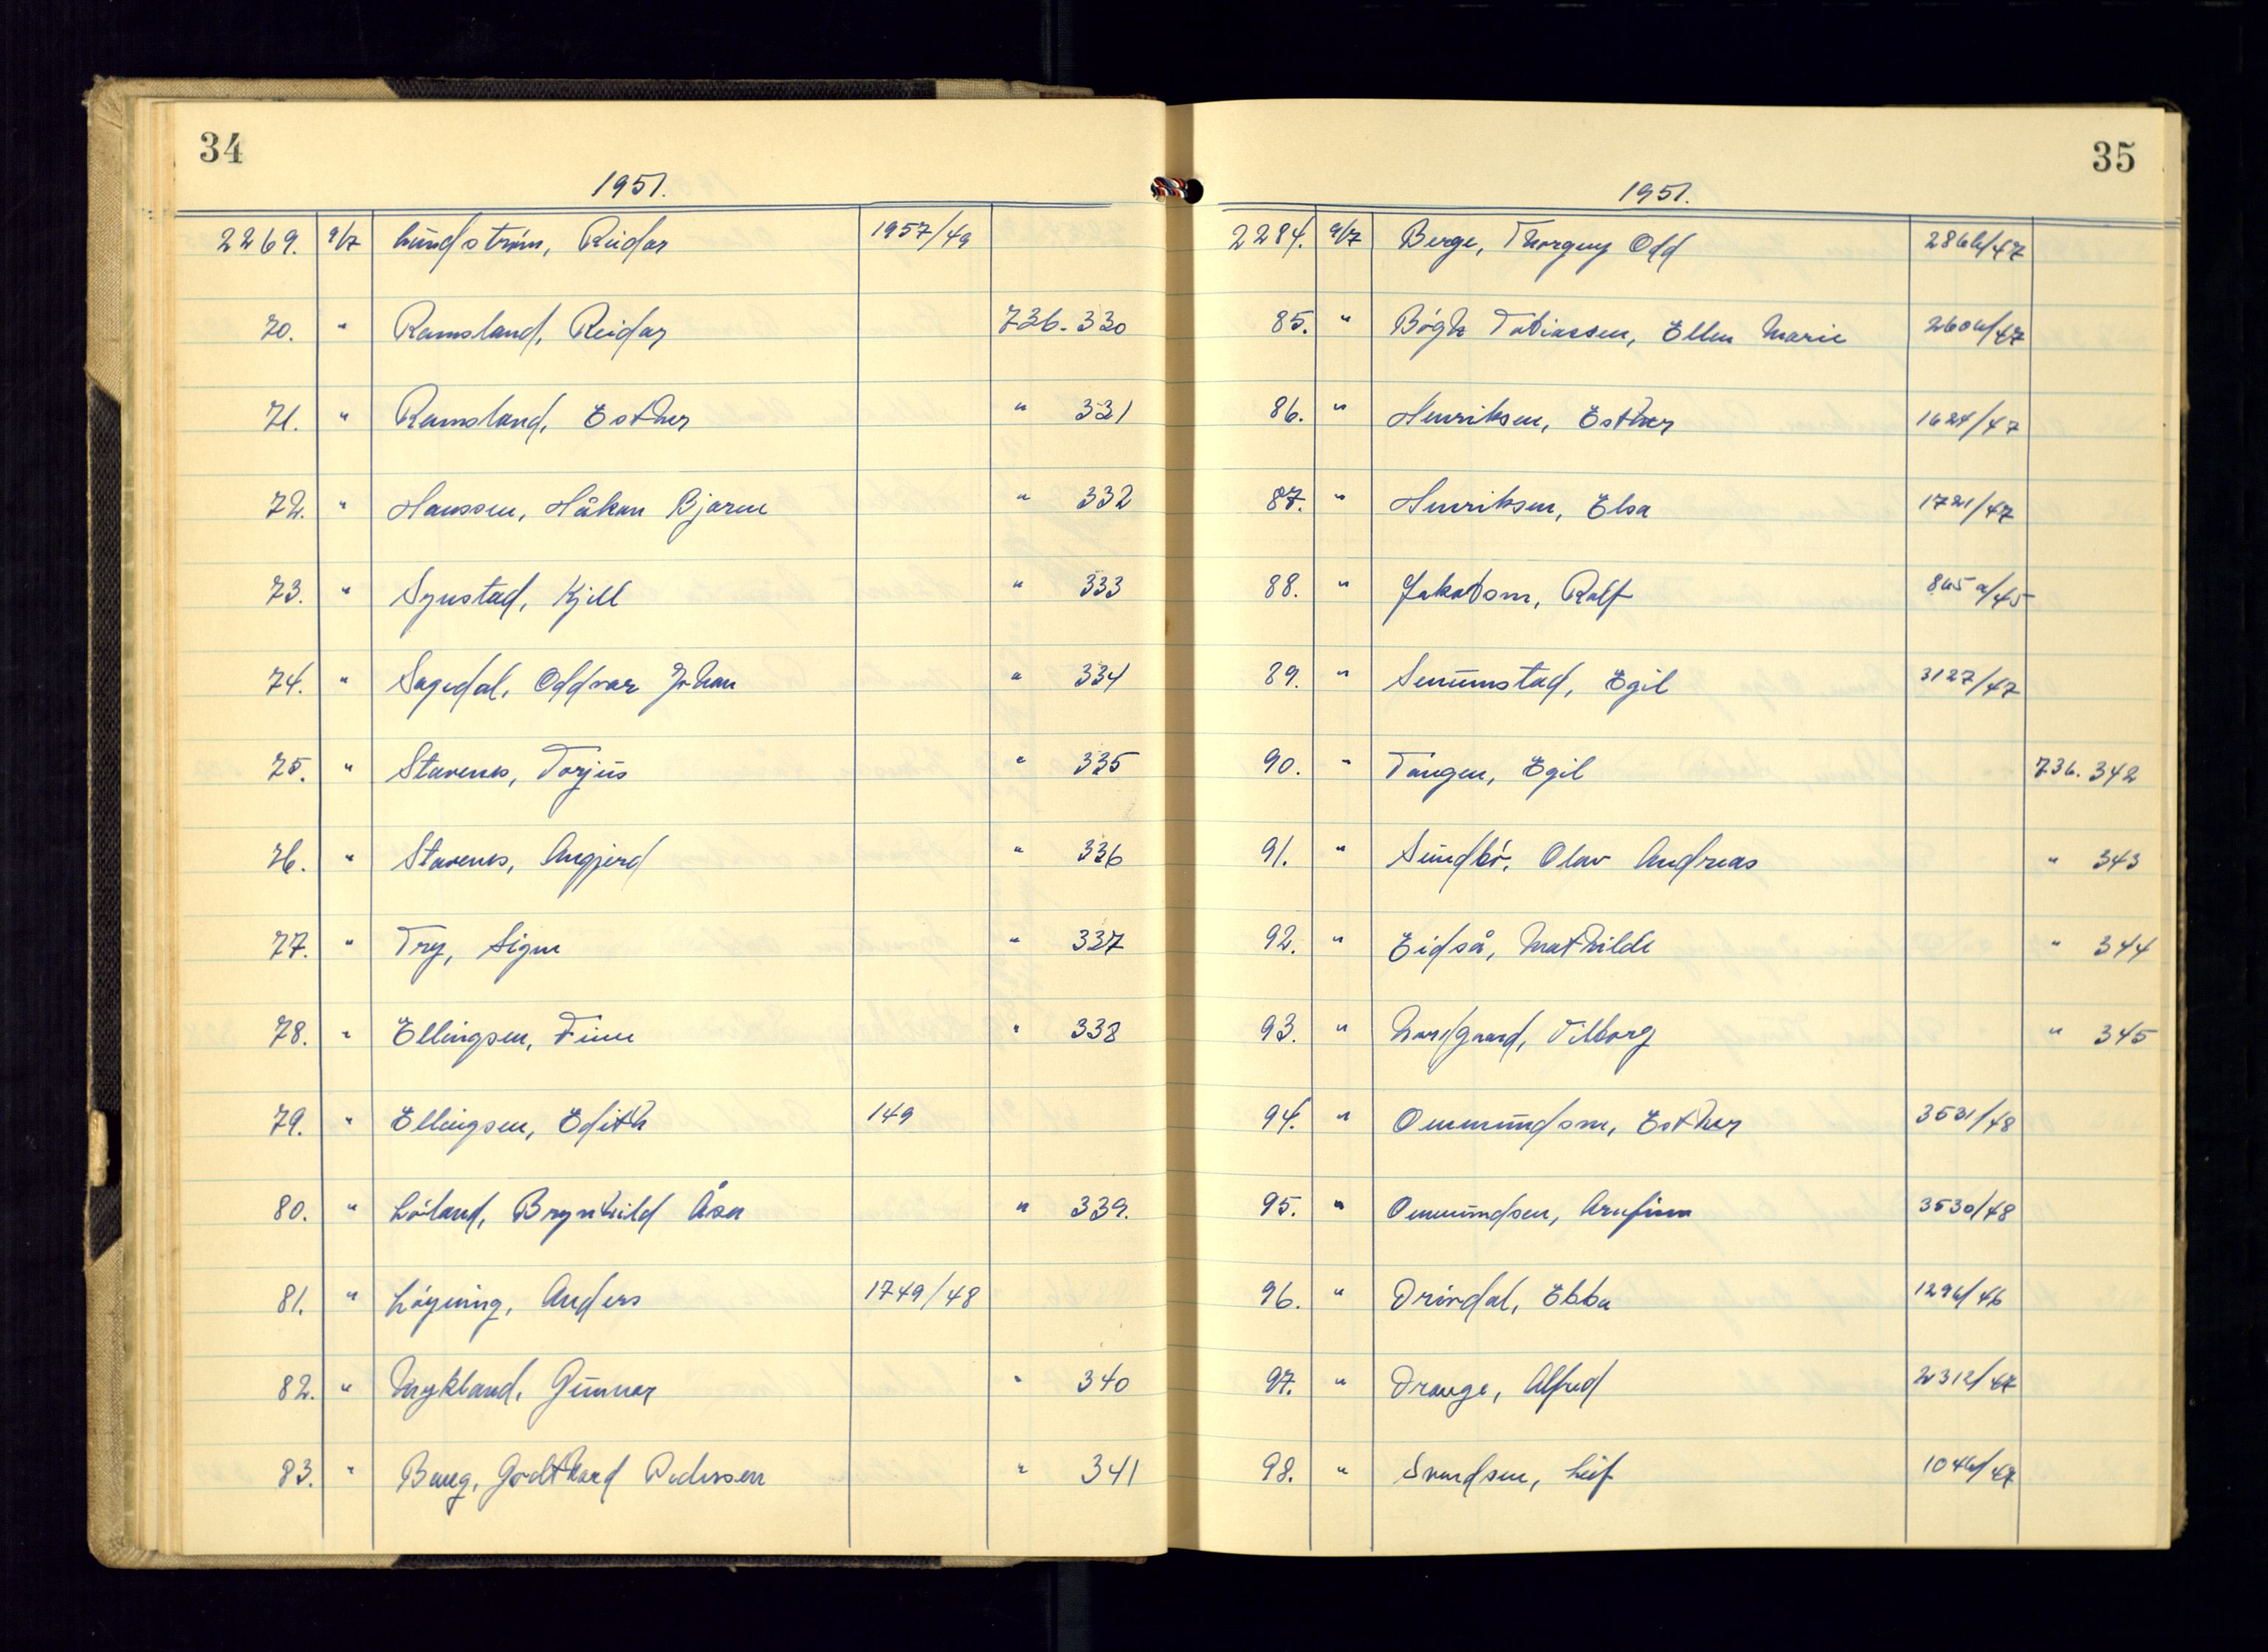 34
1951.
2269. 9/7 Lundstrøm, Reidar 1957/49
70. " Ramsland, Reidar 736.330
71. " Ramsland, Esther " 331
72. " Hanssen, Håkon Bjarne " 332
73. " Synstad, Kjell " 333
74. " Sagedal, Oddvar Johan " 334
75. " Stavenes, Torjus " 335
76. " Stavenes, Angjerd " 336
77. " Try, Signe " 337
78. " Ellingsen, Finn " 338
79. " Ellingsen, Edith 149
80. " Løland, Brynhild Åsa " 339.
81. " Løyning, Anders 1749/48
82. " Mykland, Gunnar " 340
83. " Baug, Godthard Pedersen " 341
35
1951.
2284. 9/7 Berge, Thorguy Odd 2866/47
85. " Bøgh Tobiassen, Ellen Marie 2604/47
86. " Henriksen, Esther 1624/47
87. " Henriksen, Elsa 1721/47
88. " Jakobsen, Rolf 865a/45
89. " Senumstad, Egil 3127/47
90. " Tangen, Egil 736.342
91. " Sundbø, Olav Andreas " 343
92. " Eidså, Mathilde " 344
93. " Nordgaard, Vilborg " 345
94. " Ommundsen, Esther 3531/48
95. " Ommundsen, Arnfinn 3530/48
96. " Drivdal, Ebba 1296/46
97. " Drange, Alfred 2312/47
98. " Svendsen, Leif 1046/47